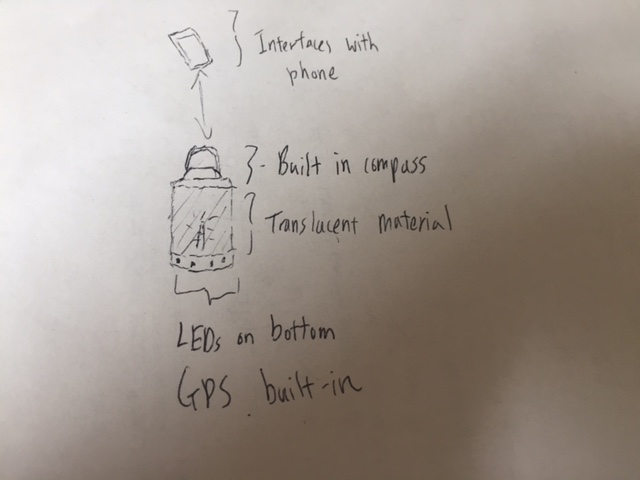 Interfaces with
phone
Built in compass
Translucent material
LEDs on bottom
GPS built-in